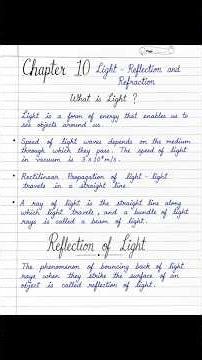 Chapter 10 Light - Reflection and
Refraction
What is Light ?
Light is a form of energy that enables us to
see objects around us.
• Speed of light waves depends on the medium
through which they pass. The speed of light
in vacuum is 3×10⁸ m/s.
• Rectilinear Propagation of light - light
travels in a straight line.
• A ray of light is the straight line along
which light travels, and a bundle of light
rays is called a beam of light.
Reflection of Light
The phenomenon of bouncing back of light
rays when they strike the surface of an
object is called reflection of light.